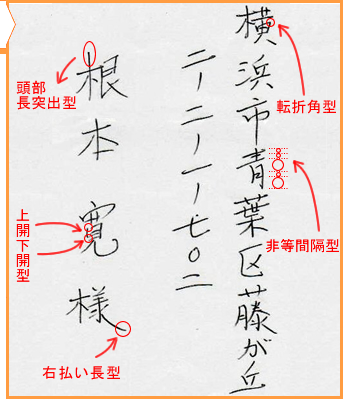 横浜市青葉区藤が丘
二ー二ー一ー七〇二
根本寛様
頭部
長突出型
転折角型
非等間隔型
上開下開型
右払い長型